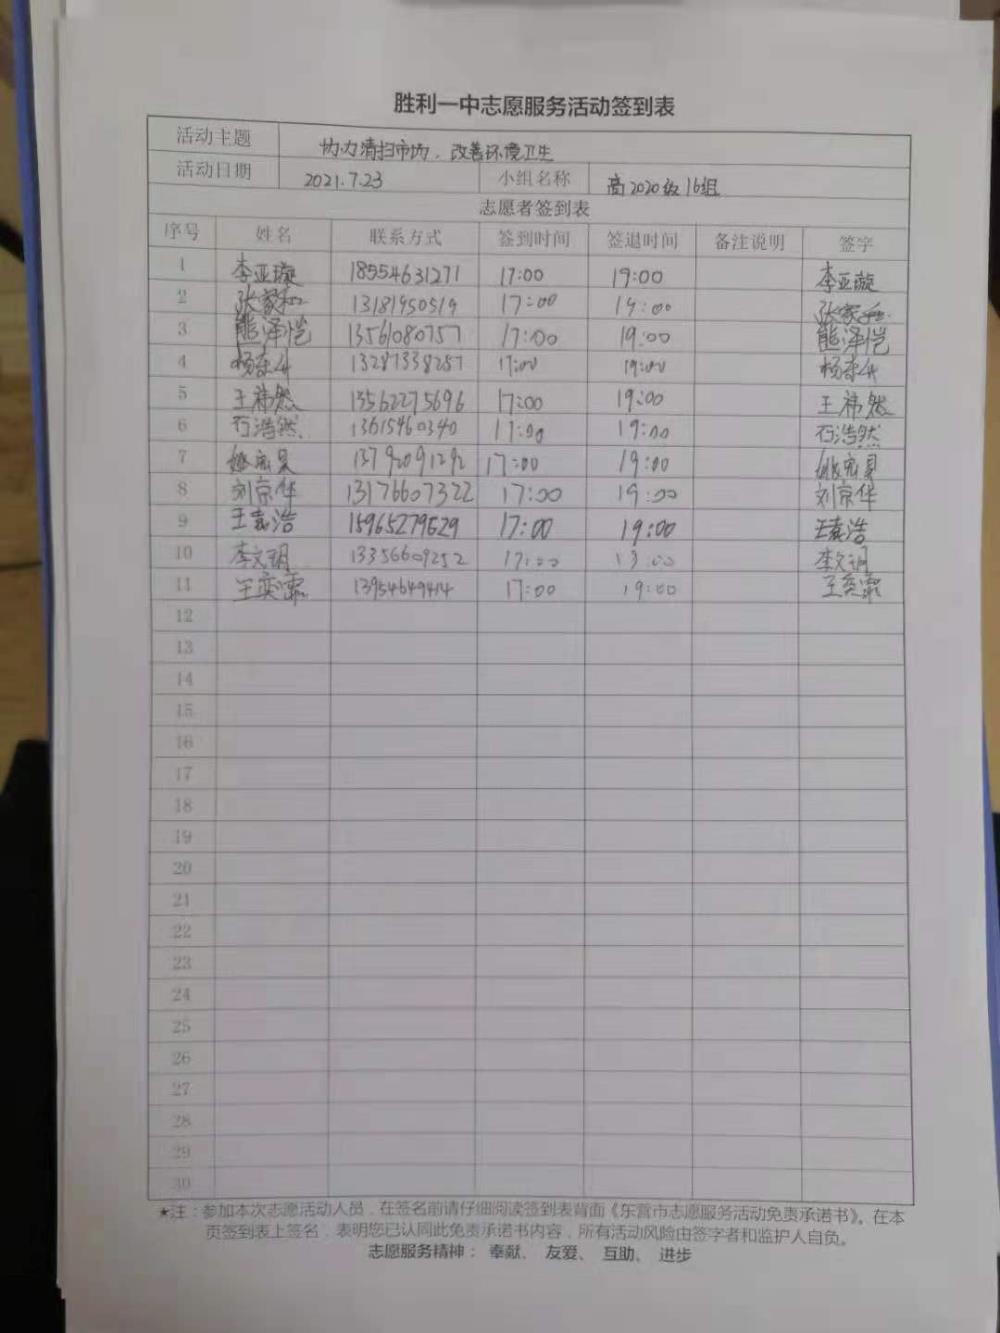 胜利一中志愿服务活动签到表
活动主题 协力清扫市场，改善环境卫生
活动日期 2021.7.23 小组名称 高2020级16组
志愿者签到表
序号 姓名 联系方式 签到时间 签退时间 备注说明 签字
1 李亚璇 18554631271 17:00 19:00 李亚璇
2 张家和 13181950519 17:00 19:00 张家和
3 熊泽恺 13561080757 17:00 19:00 熊泽恺
4 17:00 19:00
5 王祎然 13562275696 17:00 19:00 王祎然
6 石浩然 13615460340 17:00 19:00 石浩然
7 13792091292 17:00 19:00
8 刘京华 13176607322 17:00 19:00 刘京华
9 王嘉浩 15965279529 17:00 19:00 王嘉浩
10 李文玥 13356609252 17:00 李文玥
11 王奕霏 13954649414 17:00 19:00 王奕霏
12
13
14
15
16
17
18
19
20
21
22
23
24
25
26
27
28
29
30
★注：参加本次志愿活动人员，在签名前请仔细阅读签到表背面《东营市志愿服务活动免责承诺书》。在本
页签到表上签名，表明您已认同此免责承诺书内容，所有活动风险由签字者和监护人自负。
志愿服务精神： 奉献、 友爱、 互助、 进步